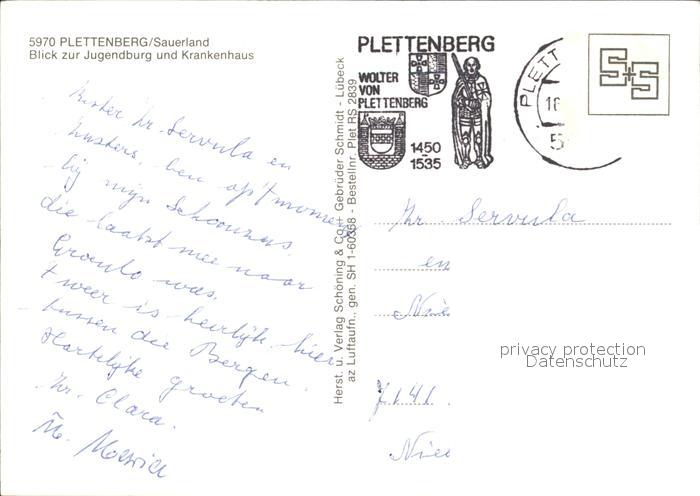 5970 PLETTENBERG/Sauerland
Blick zur Jugendburg und Krankenhaus
Zr. Servula en
Zusters, ben op 't moment
bij mijn Schoonzus.
die laatst mee naar
Groenlo was.
't weer is heerlijk hier
tussen die Bergen.
Hartelijke groeten
Zr. Clara.
Herst. u. Verlag Schöning & Co + Gebrüder Schmidt - Lübeck
az Luftaufn., gen. SH 1-60368 - Bestellnr. Plet RS 2839
PLETTENBERG
WOLTER
VON
PLETTENBERG
1450
-
1535
PLETT
18
5
S+S
Zr. Servula
en
7141.
privacy protection
Datenschutz